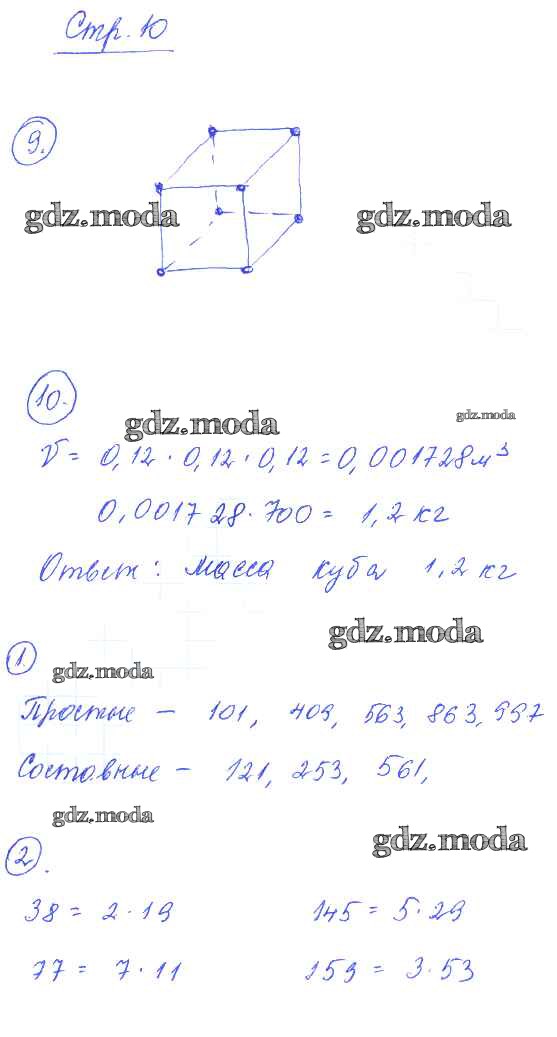 Стр. 10
9.
gdz.moda gdz.moda
10.
gdz.moda gdz.moda
V = 0,12 · 0,12 · 0,12 = 0,001728 м³
0,001728 · 700 = 1,2 кг
Ответ: масса куба 1,2 кг
gdz.moda
1.
gdz.moda
Простые – 101, 409, 563, 863, 997
Составные – 121, 253, 561,
gdz.moda
2.
gdz.moda
38 = 2 · 19 145 = 5 · 29
77 = 7 · 11 159 = 3 · 53